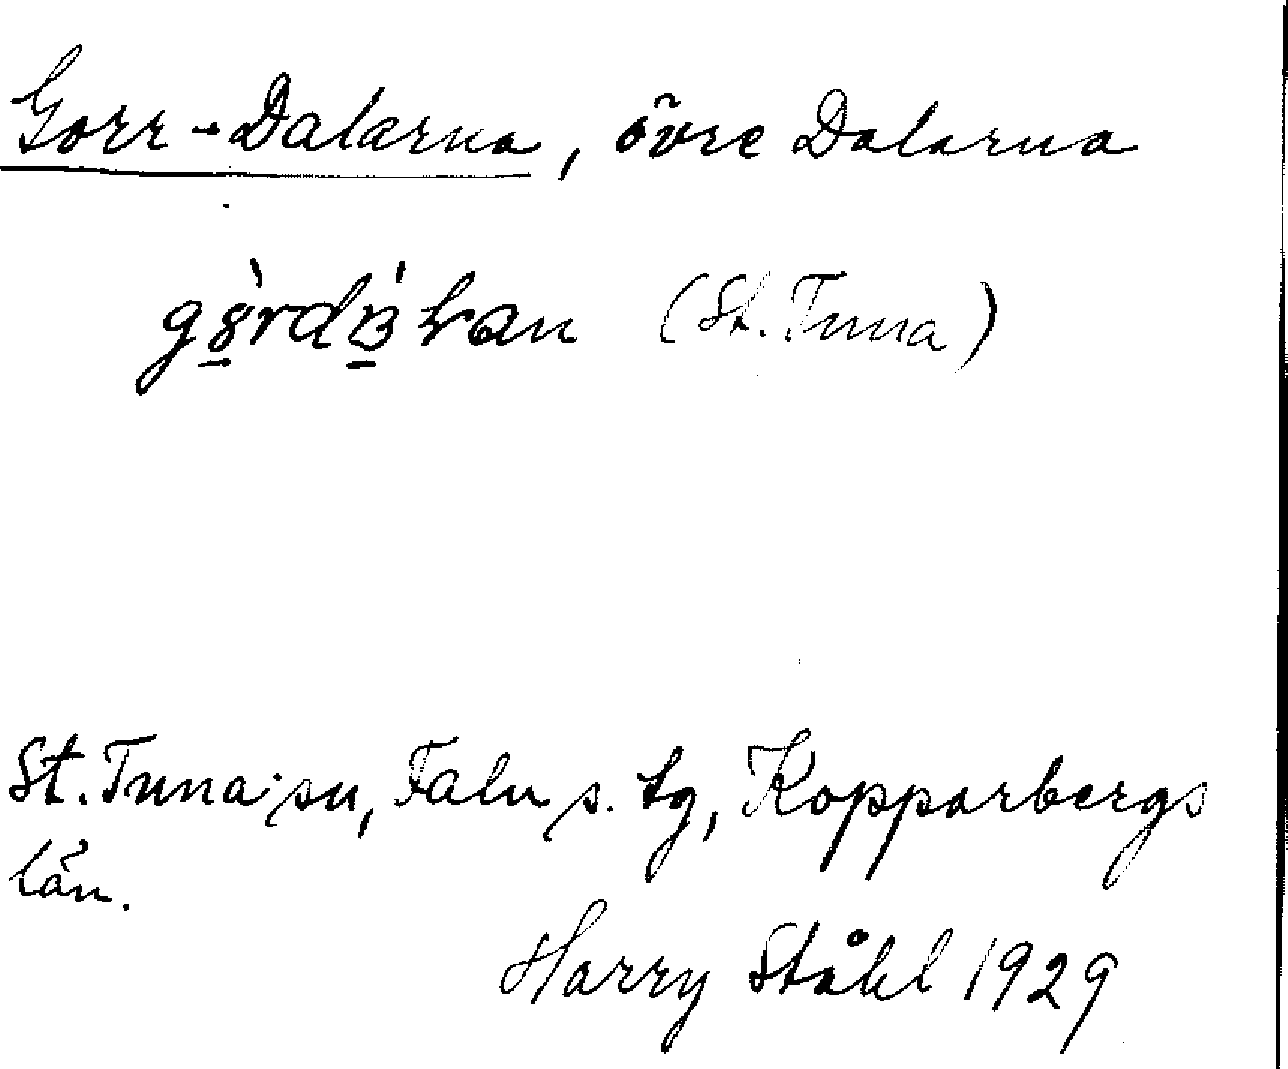 Gorr-Dalarna, övre Dalarna
(St. Tuna)
St. Tuna sn, Falu s. tg, Kopparbergs
län.
Harry Ståhl 1929